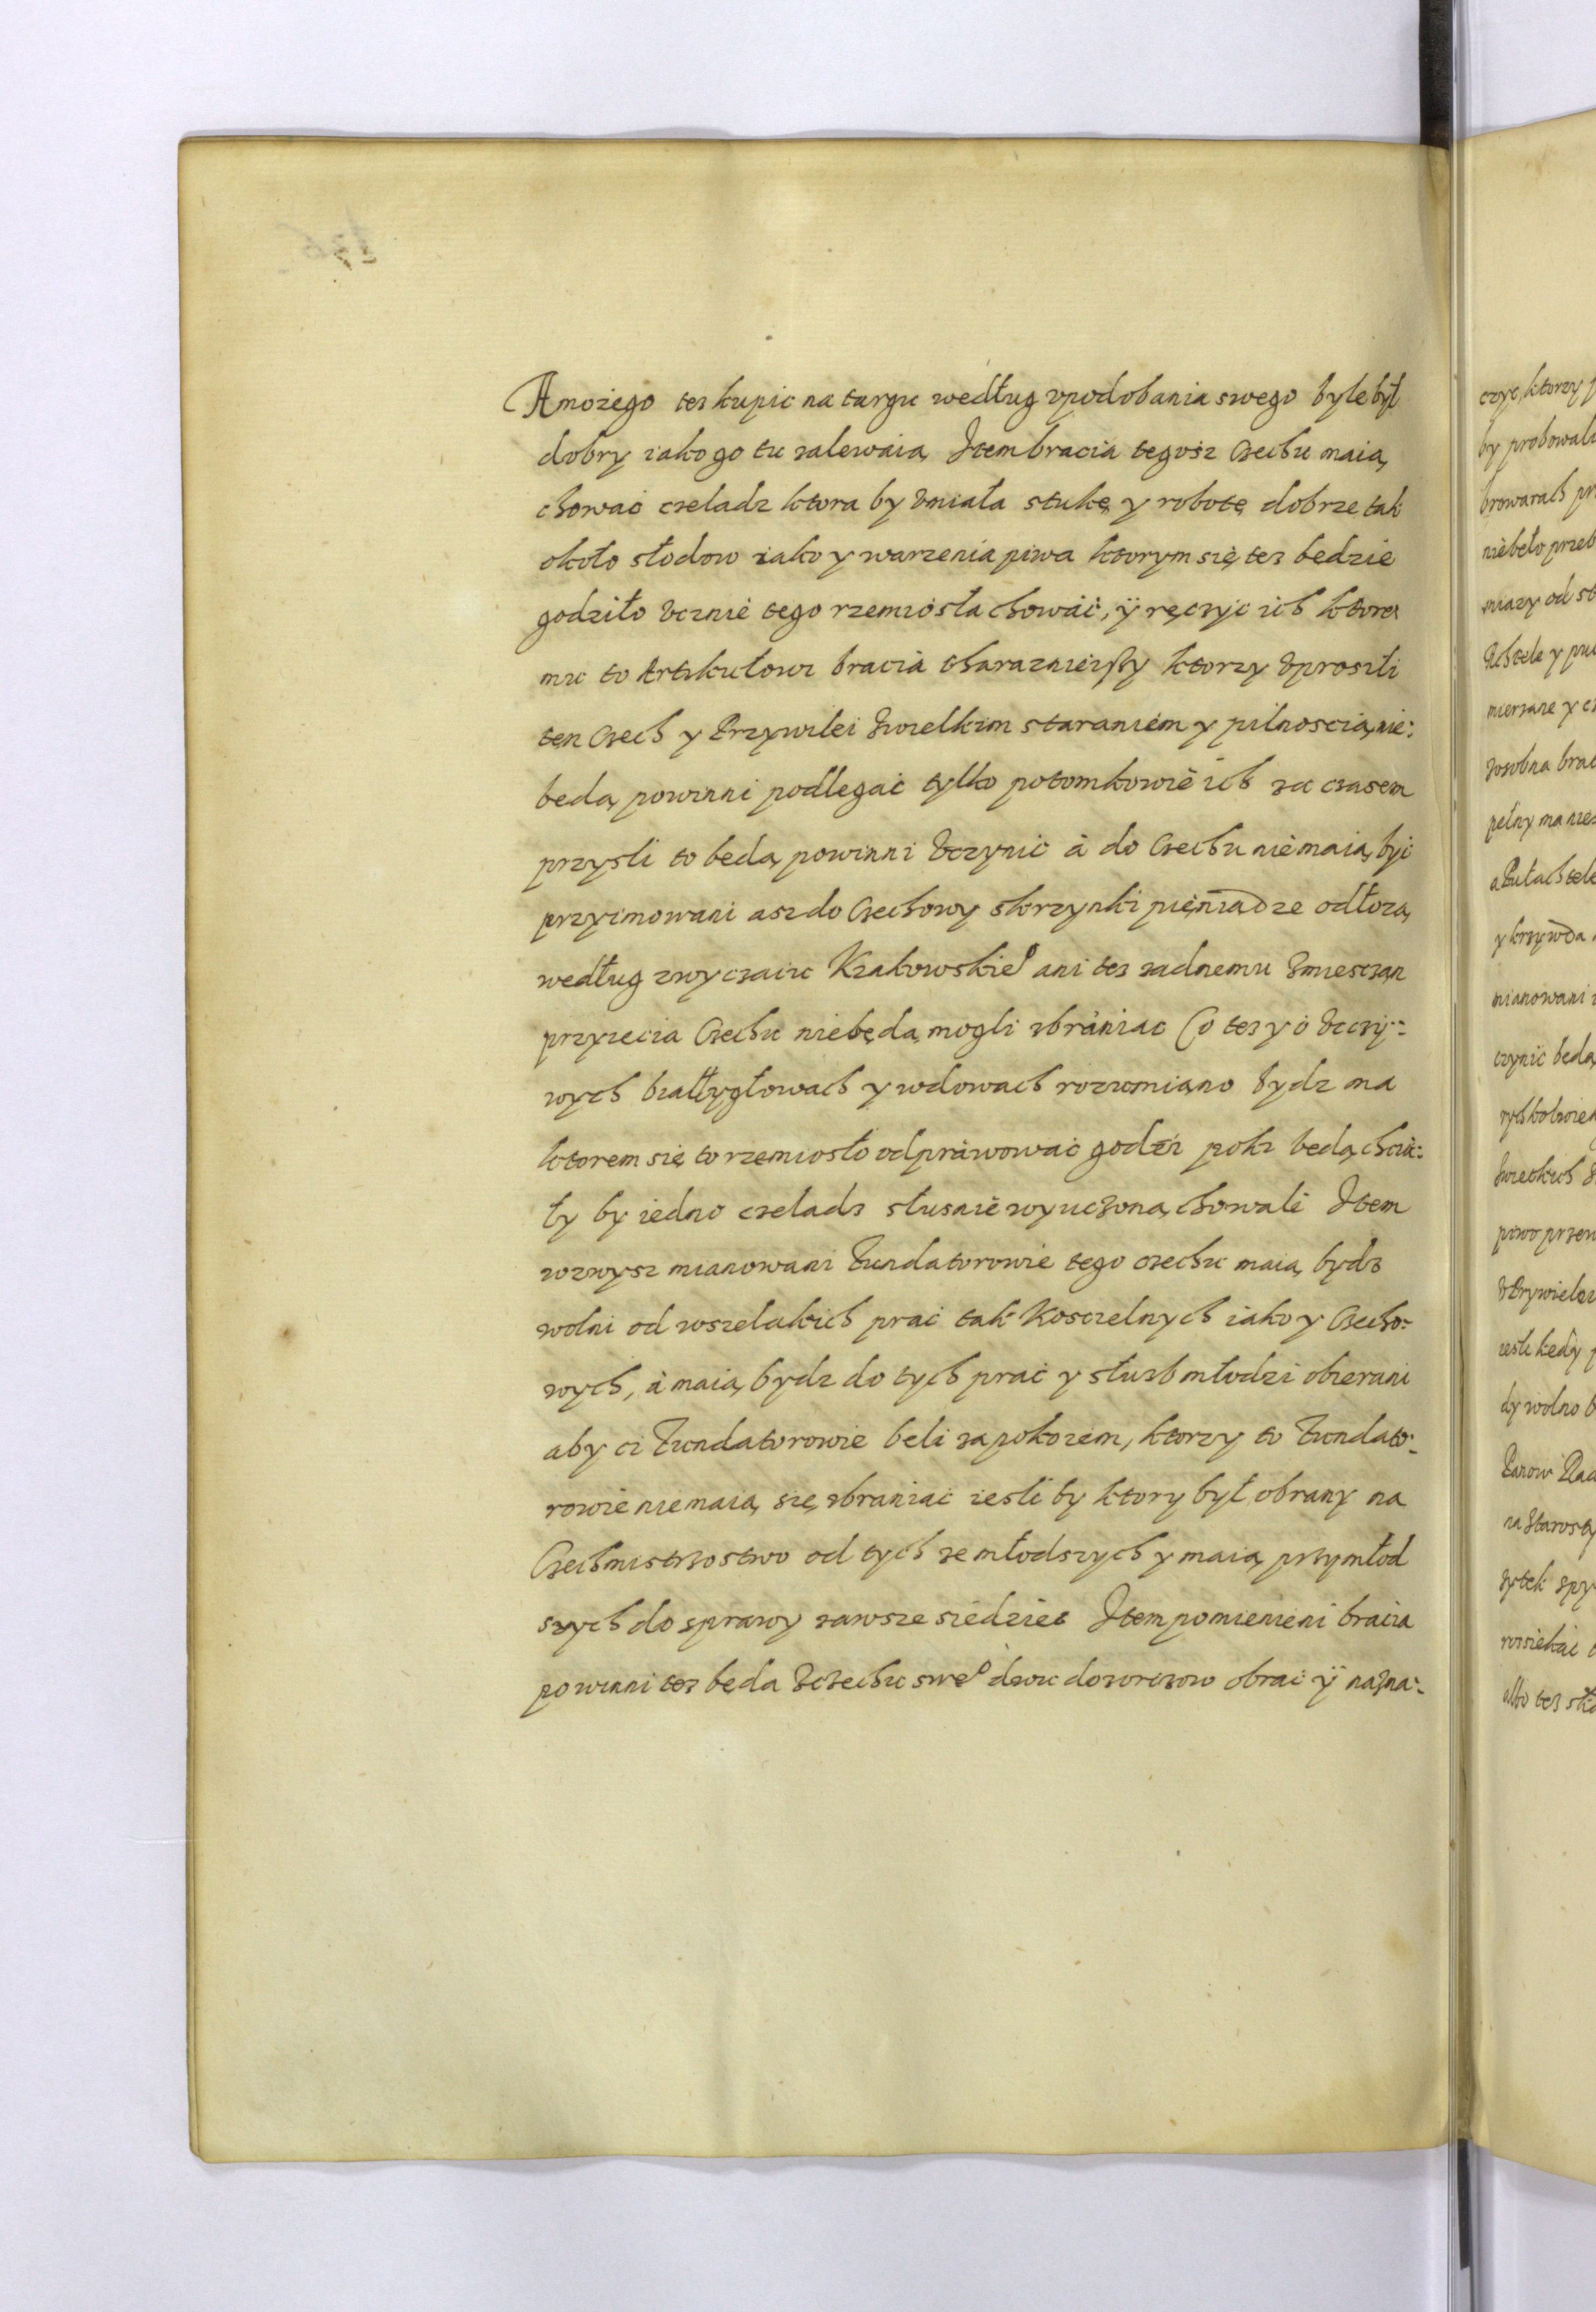 A może go tez kupic na targu według vpodobania swego byle był
dobry iako go tu zalewaią Item bracia tegosz Czechu maią
chować czeladz ktora by vmiała stukę y robotę dobrze tak
około słodow iako y warzenia piwa ktorym się tez będzie
godziło vcznie tego rzemiosła chowáć, ÿ ręczyc ich ktore
mu to Artikułowi bracia tharaznieissy ktorzy vprosili
ten Czech y Przywilei zwielkim staraniem y pilnoscią nie:
będą powinni podlegać tylko potomkowie ich za czasem
przysli to będą powinni vczynić á do Czechu nie maią być
przyimowani asz do Czechowy skrzynki pieniądze odłożą
według zwyczaiu Krakowskieº ani tez zadnemu zmiesczan
przyiecia Czechu niebędą mogli zbraniac Co tez y o vczci:
wych białłygłowach y wdowach rozumiano bydz ma
ktorem się to rzemiosło odprawować godzi poki będą chcia:
ły by iedno czeladz słusnie wyuczoną chowali Item
zozwysz mianowani Fundatorowie tego czechu maią bydz
wolni od wszelakich prac tak Koscielnych iako y Czecho:
wych, á maią bydz do tych prac y słuzb młodzi obierani
aby ci Fundatorowie beli zapokoiem, ktorzy to Fundato:
rowie nie maią się zbraniać iesli by ktory był obrany na
Czechmistrzostwo od tych ze młodszych y maią przy młod
szych do sprawy zawsze siedziec Item pomienieni bracia
powinni tez będa zczechu sweº dwu dozorczow obrać ÿ nazna:
czyc, ktorzy
by probowali
browarach
niebeło
miary od
Achtele y
mierzane y
zosobna
pełny ma
a Pułachtele
y krzywda
mianowani
czynić będą
piwo
iesli kedy
dy wolno
Panow
na Starosty
albo tez